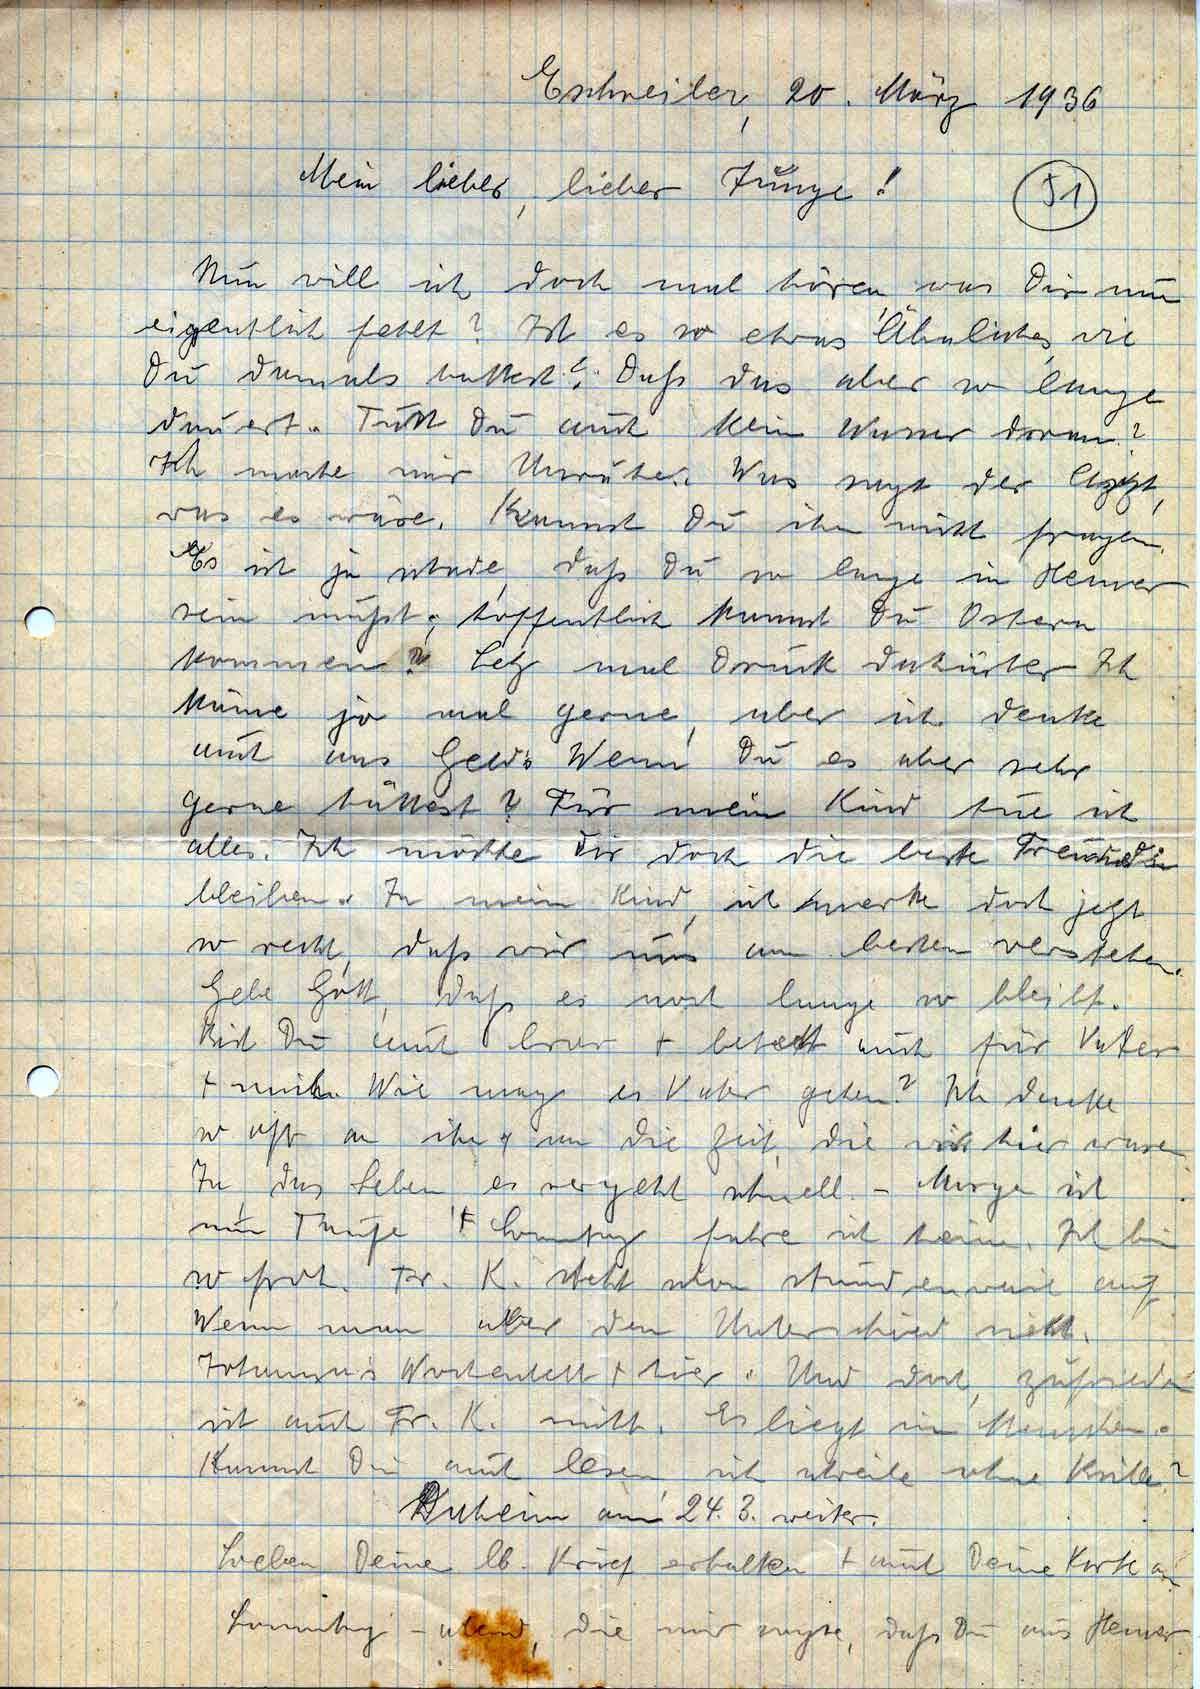 Eschweiler, 20. März 1936
Mein lieber, lieber Junge! 51
Nun will ich doch mal hören, was Dir nun
eigentlich fehlt? Ist es so etwas Ähnliches, wie
Du damals hattest? Daß das aber so lange
dauert. Tust Du auch kein Wasser daran?
Ich mache mir Unruhe. Was sagt der Arzt,
was es wäre. Kannst Du ihn nicht fragen.
Es ist ja schade, daß Du so lange in Hemer
sein mußt, hoffentlich kannst Du Ostern
kommen? Leg mal Druck dahinter Ich
käme ja mal gerne, aber ich denke
auch ans Geld. Wenn Du es aber sehr
gerne hättest? Für mein Kind tue ich
alles. Ich möchte Dir doch die beste Freundin
bleiben. Ja mein Kind, ich merke doch jetzt
so recht, daß wir uns am besten verstehen.
Gebe Gott, daß es noch lange so bleibt.
Bist Du auch brav + betest auch für Vater
+ mich. Wie mag es Vater gehen? Ich denke
so oft an ihn, an die Zeit, die wir hier waren.
Ja, das Leben es vergeht schnell. – Morgen ist
nun Taufe + Sonntag fahre ich heim. Ich bin
so froh. Fr. K. steht schon stundenweise auf.
Wenn man aber den Unterschied sieht.
Johanna's Wochenbett + hier. Und doch, zufrieden
ist auch Fr. K. nicht. Es liegt im Menschen.
Kannst Du auch lesen, ich schreibe ohne Brille?
Daheim am 24.3. weiter.
Soeben Deine lb. Brief erhalten + auch Deine Karte am
Sonntag-abend, die mir sagte, daß Du aus Hemer